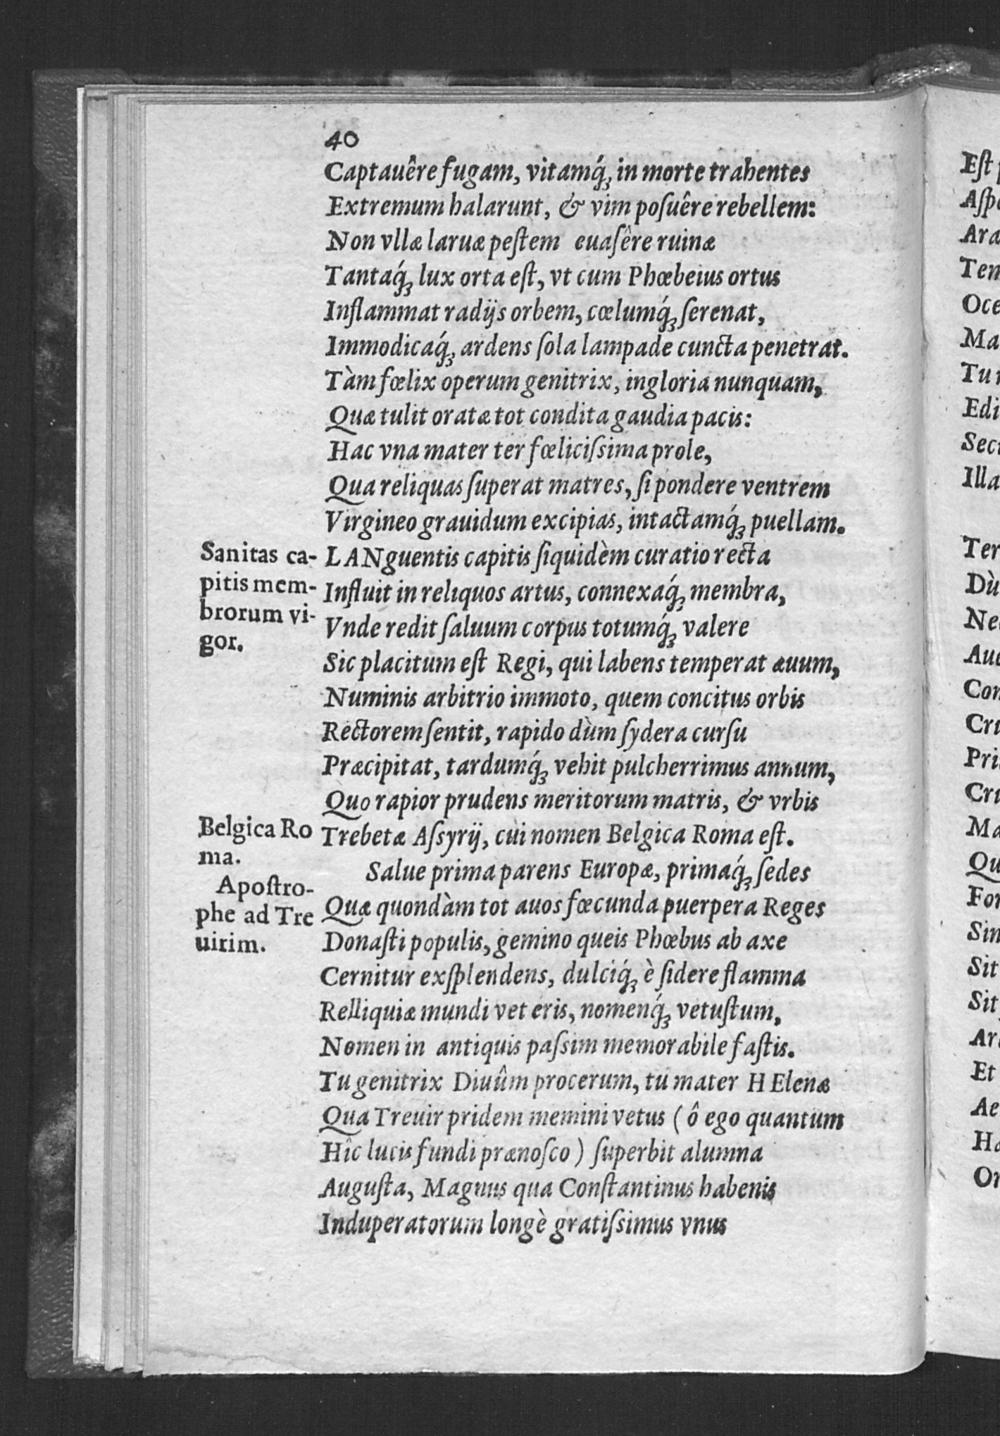 40
Captauêre fugam, vitamq́ꝫ in morte trahentes
Extremum halarunt, & vim poſuêre rebellem:
Non vllæ laruæ peſtem euaſêre ruinæ
Tantaq́ꝫ lux orta eſt, vt cum Phœbeius ortus
Inflammat radijs orbem, cœlumq́ꝫ ſerenat,
Immodicaq́ꝫ ardens ſola lampade cuncta penetrat.
Tàm fœlix operum genitrix, ingloria nunquam,
Quæ tulit oratæ tot condita gaudia pacis:
Hac vna mater ter fœliciſsima prole,
Qua reliquas ſuperat matres, ſi pondere ventrem
Virgineo grauidum excipias, intactamq́ꝫ puellam.
Sanitas ca-
pitis mem-
brorum vi-
gor.
LANguentis capitis ſiquidèm curatio recta
Influit in reliquos artus, connexaq́ꝫ membra,
Vnde redit ſaluum corpus totumq́ꝫ valere
Sic placitum eſt Regi, qui labens temperat æuum,
Numinis arbitrio immoto, quem concitus orbis
Rectorem ſentit, rapido dùm ſydera curſu
Præcipitat, tardumq́ꝫ vehit pulcherrimus annum,
Quo rapior prudens meritorum matris, & vrbis
Belgica Ro
ma.
Trebetæ Aſsyrij, cui nomen Belgica Roma eſt.
Apoſtro-
phe ad Tre
uirim.
Salue prima parens Europæ, primaq́ꝫ ſedes
Quæ quondàm tot auos fœcunda puerpera Reges
Donaſti populis, gemino queis Phœbus ab axe
Cernitur exſplendens, dulciq́ꝫ è ſidere flamma
Relliquiæ mundi veteris, nomenq́ꝫ vetuſtum,
Nomen in antiquis paſsim memorabile faſtis.
Tu genitrix Diuûm procerum, tu mater HElenæ
Qua Treuir pridem memini vetus (ô ego quantum
Hîc lucis fundi prænoſco) ſuperbit alumna
Auguſta, Magnus qua Conſtantinus habenis
Induperatorum longè gratiſsimus vnus
Eſt
Ara
Tem
Oce
Ma
Tu
Edi
Illa
Ter
Dù
Con
Pri
Ma
Qu
For
Sin
Sit
Sit
Et
Ae